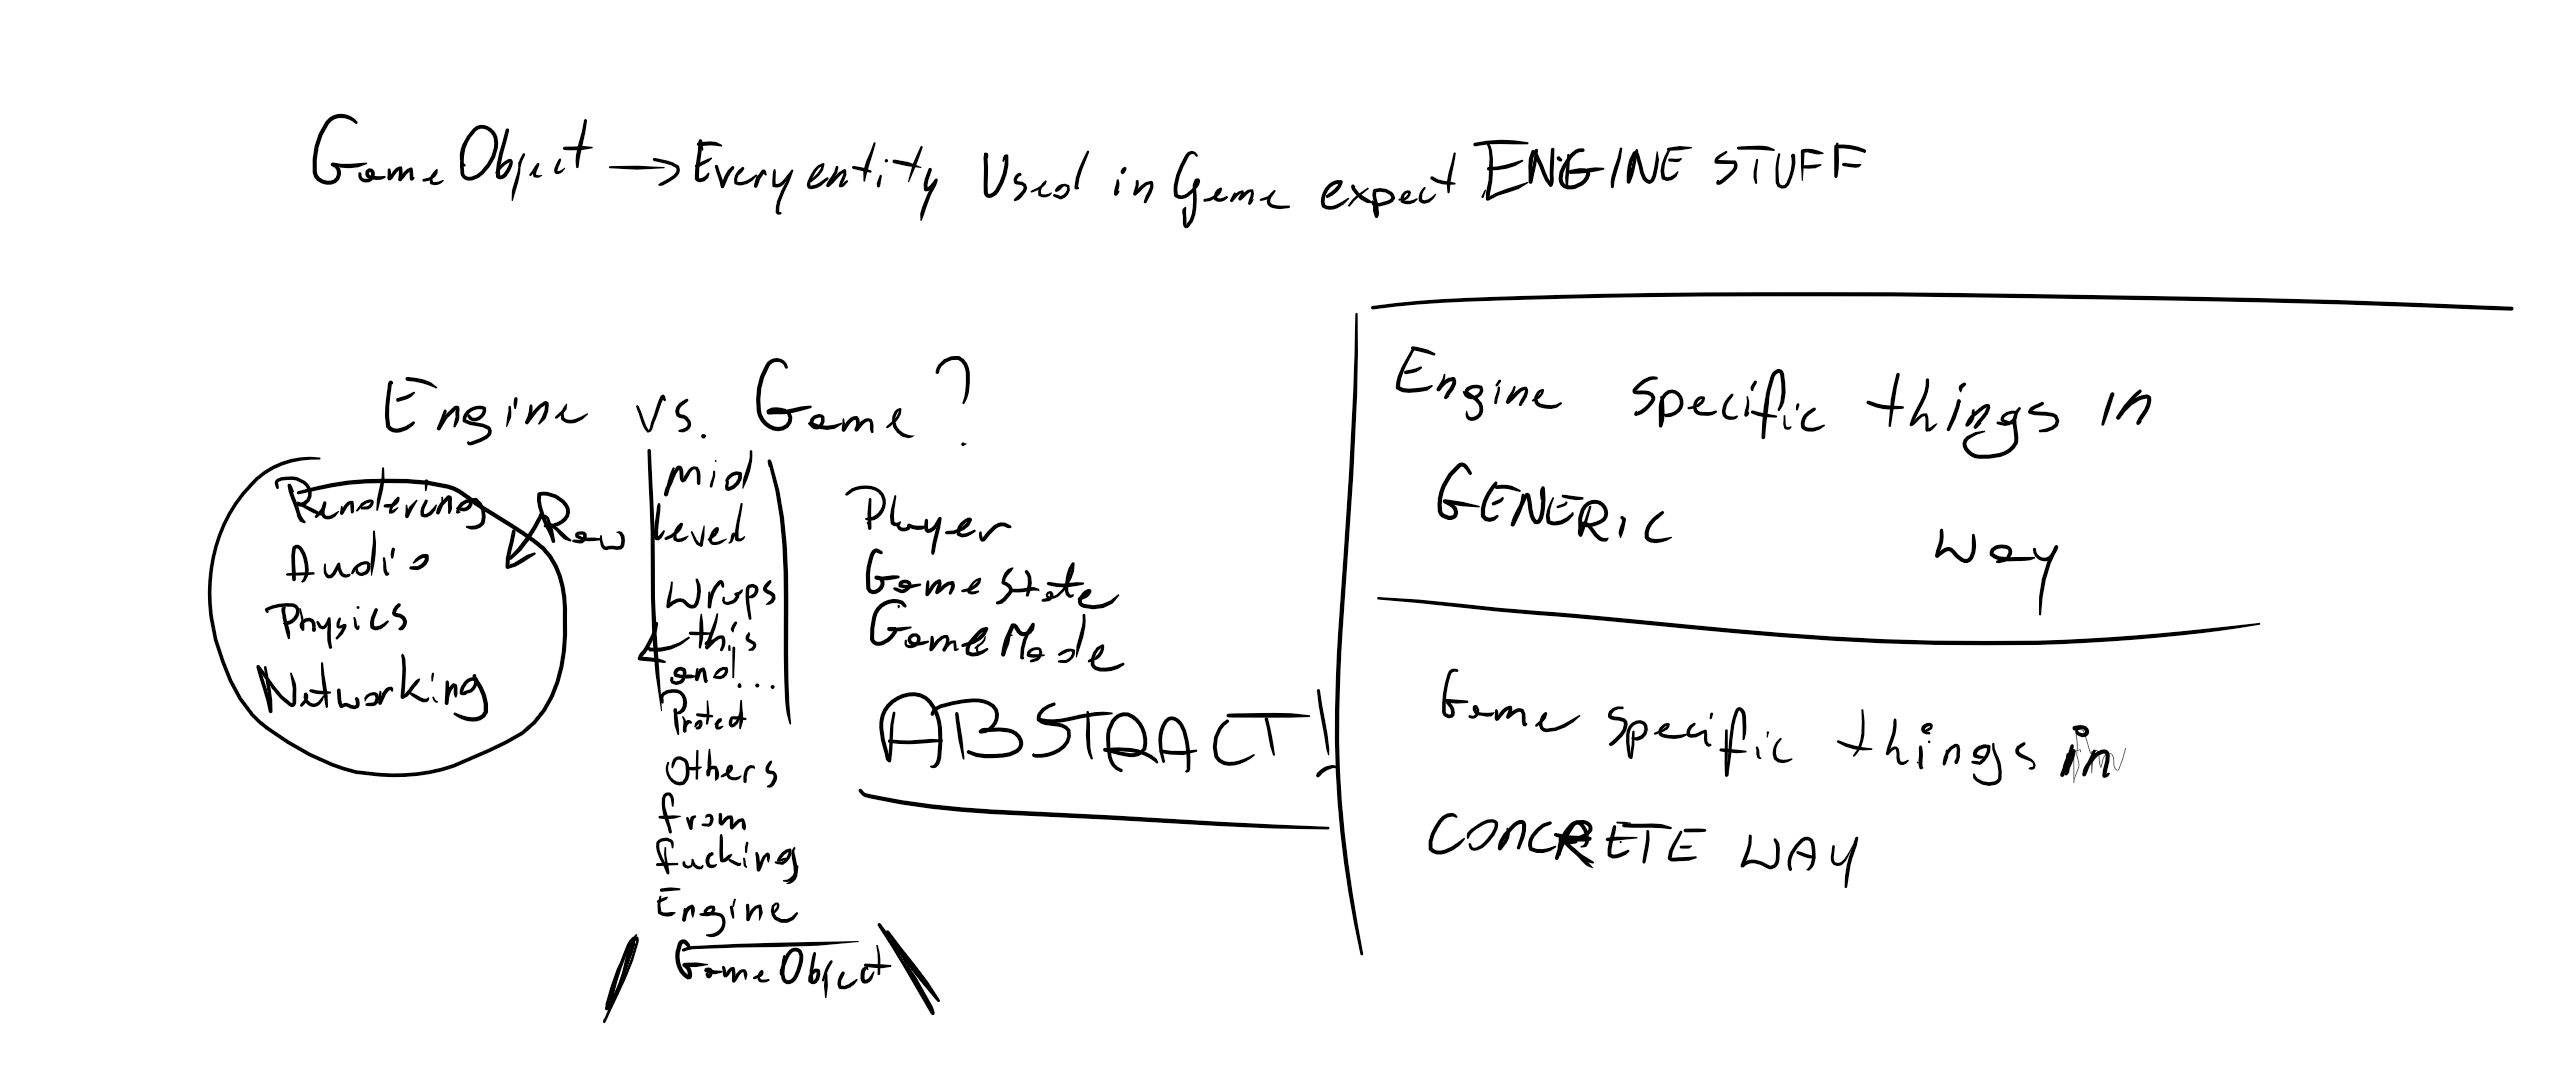 GameObject → Every entity Used in Game expect ENGINE STUFF
Engine vs. Game?
Rendering
Audio
Physics
Networking
Raw
Mid
Level
Wraps
this
and...
Protect
Others
from
fucking
Engine
GameObject
Player
GameState
GameMode
ABSTRACT!
Engine specific things in
GENERIC way
Game specific things in
CONCRETE WAY